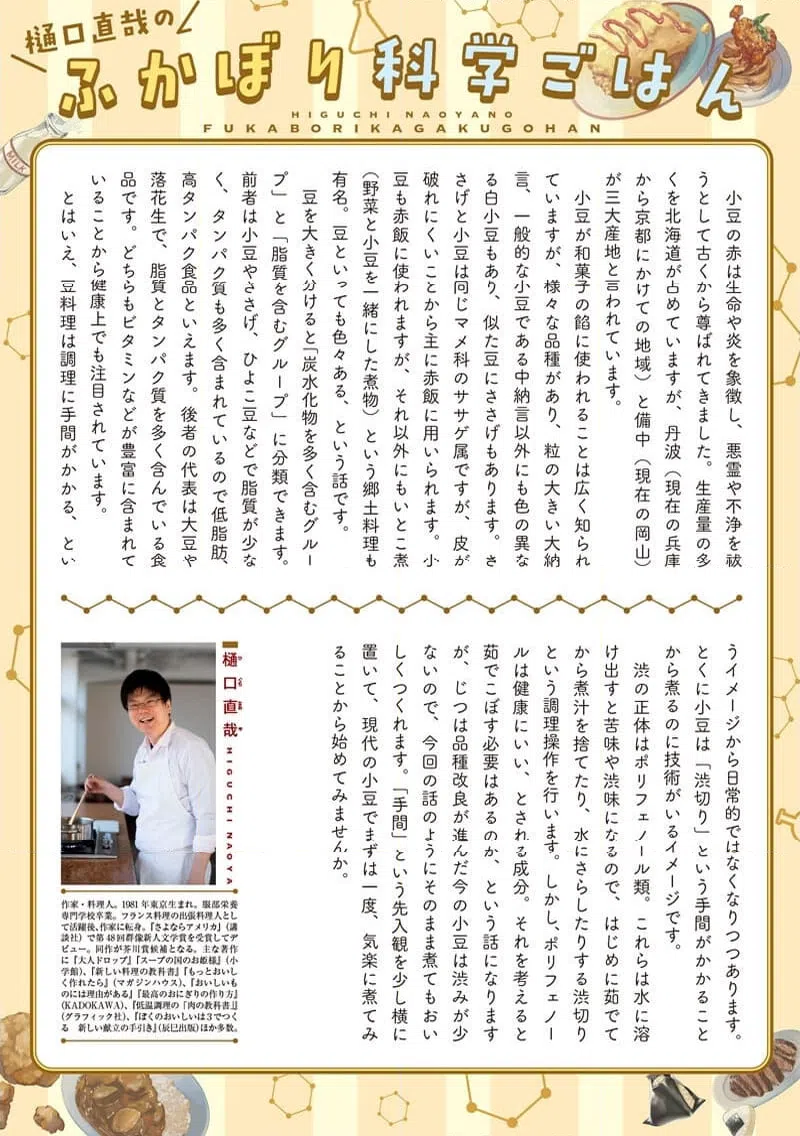 樋口直哉の
ふかぼり科学ごはん
HIGUCHI NAOYANO
FUKABORIKAGAKUGOHAN
MILK
小豆の赤は生命や炎を象徴し、悪霊や不浄を祓
うとして古くから尊ばれてきました。生産量の多
くを北海道が占めていますが、丹波（現在の兵庫
から京都にかけての地域）と備中（現在の岡山）
が三大産地と言われています。
小豆が和菓子の餡に使われることは広く知られ
ていますが、様々な品種があり、粒の大きい大納
言、一般的な小豆である中納言以外にも色の異な
る白小豆もあり、似た豆にささげもあります。さ
さげと小豆は同じマメ科のササゲ属ですが、皮が
破れにくいことから主に赤飯に用いられます。小
豆も赤飯に使われますが、それ以外にもいとこ煮
（野菜と小豆を一緒にした煮物）という郷土料理も
有名。豆といっても色々ある、という話です。
豆を大きく分けると「炭水化物を多く含むグルー
プ」と「脂質を含むグループ」に分類できます。
前者は小豆やささげ、ひよこ豆などで脂質が少な
く、タンパク質も多く含まれているので低脂肪、
高タンパク食品といえます。後者の代表は大豆や
落花生で、脂質とタンパク質を多く含んでいる食
品です。どちらもビタミンなどが豊富に含まれて
いることから健康上でも注目されています。
とはいえ、豆料理は調理に手間がかかる、とい
うイメージから日常的ではなくなりつつあります。
とくに小豆は「渋切り」という手間がかかること
から煮るのに技術がいるイメージです。
渋の正体はポリフェノール類。これらは水に溶
け出すと苦味や渋味になるので、はじめに茹でて
から煮汁を捨てたり、水にさらしたりする渋切り
という調理操作を行います。しかし、ポリフェノー
ルは健康にいい、とされる成分。それを考えると
茹でこぼす必要はあるのか、という話になります
が、じつは品種改良が進んだ今の小豆は渋みが少
ないので、今回の話のようにそのまま煮てもおい
しくつくれます。「手間」という先入観を少し横に
置いて、現代の小豆でまずは一度、気楽に煮てみ
ることから始めてみませんか。
樋口直哉 HIGUCHI NAOYA
作家・料理人。1981年東京生まれ。服部栄養
専門学校卒業。フランス料理の出張料理人とし
て活躍後、作家に転身。『さよならアメリカ』（講
談社）で第48回群像新人文学賞を受賞してデ
ビュー。同作が芥川賞候補となる。主な著作
に『大人ドロップ』『スープの国のお姫様』（小
学館）、『新しい料理の教科書』『もっとおいし
く作れたら』（マガジンハウス）、『おいしいもの
には理由がある』『最高のおにぎりの作り方』
（KADOKAWA）、『低温調理の「肉の教科書」』
（グラフィック社）、『ぼくのおいしいは3でつく
る 新しい献立の手引き』（辰巳出版）ほか多数。